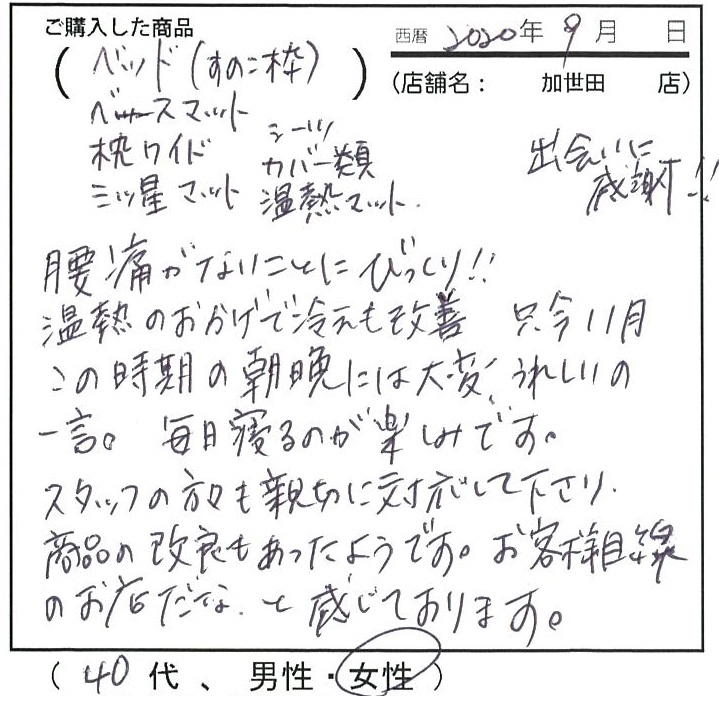 ご購入した商品
西暦 2020年 9月 日
(ベッド(すのこ枠))
(店舗名: 加世田 店)
ベースマット
シーツ
枕ワイド カバー類
三ツ星マット 温熱マット.
出会いに
感謝!!
腰痛がないことにびっくり!!
温熱のおかげで冷えも改善 只今11月
この時期の朝晩には大変、うれしいの
一言。毎日寝るのが楽しみです。
スタッフの方々も親切に対応して下さり、
商品の改良もあったようです。お客様目線
のお店だな、と感じております。
(40代、男性・女性)